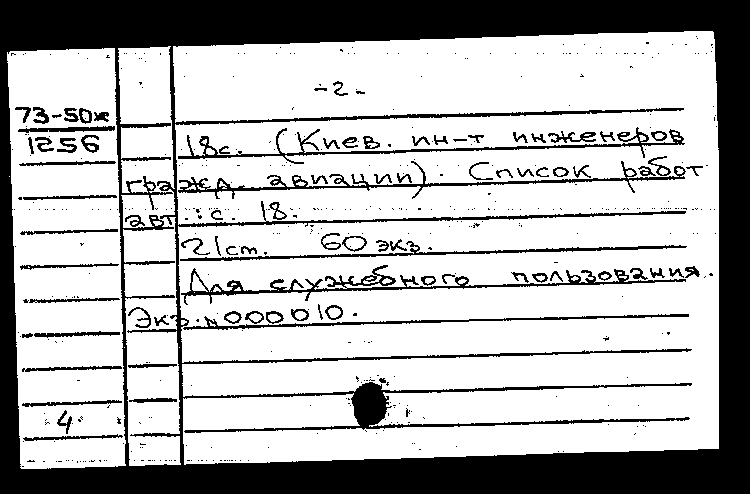 - 2 -
73-50ж
1256 18с. (Киев. ин-т инженеров
гражд. авиации). Список работ
авт.: с. 18.
21ст. 60 экз.
Для служебного пользования.
Экз. N 000010.
4